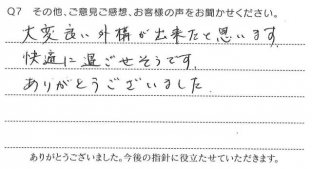 Q7 その他、ご意見ご感想、お客様の声をお聞かせください。
大変良い外構が出来たと思います。
快適に過ごせそうです。
ありがとうございました。
ありがとうございました。今後の指針に役立たせていただきます。